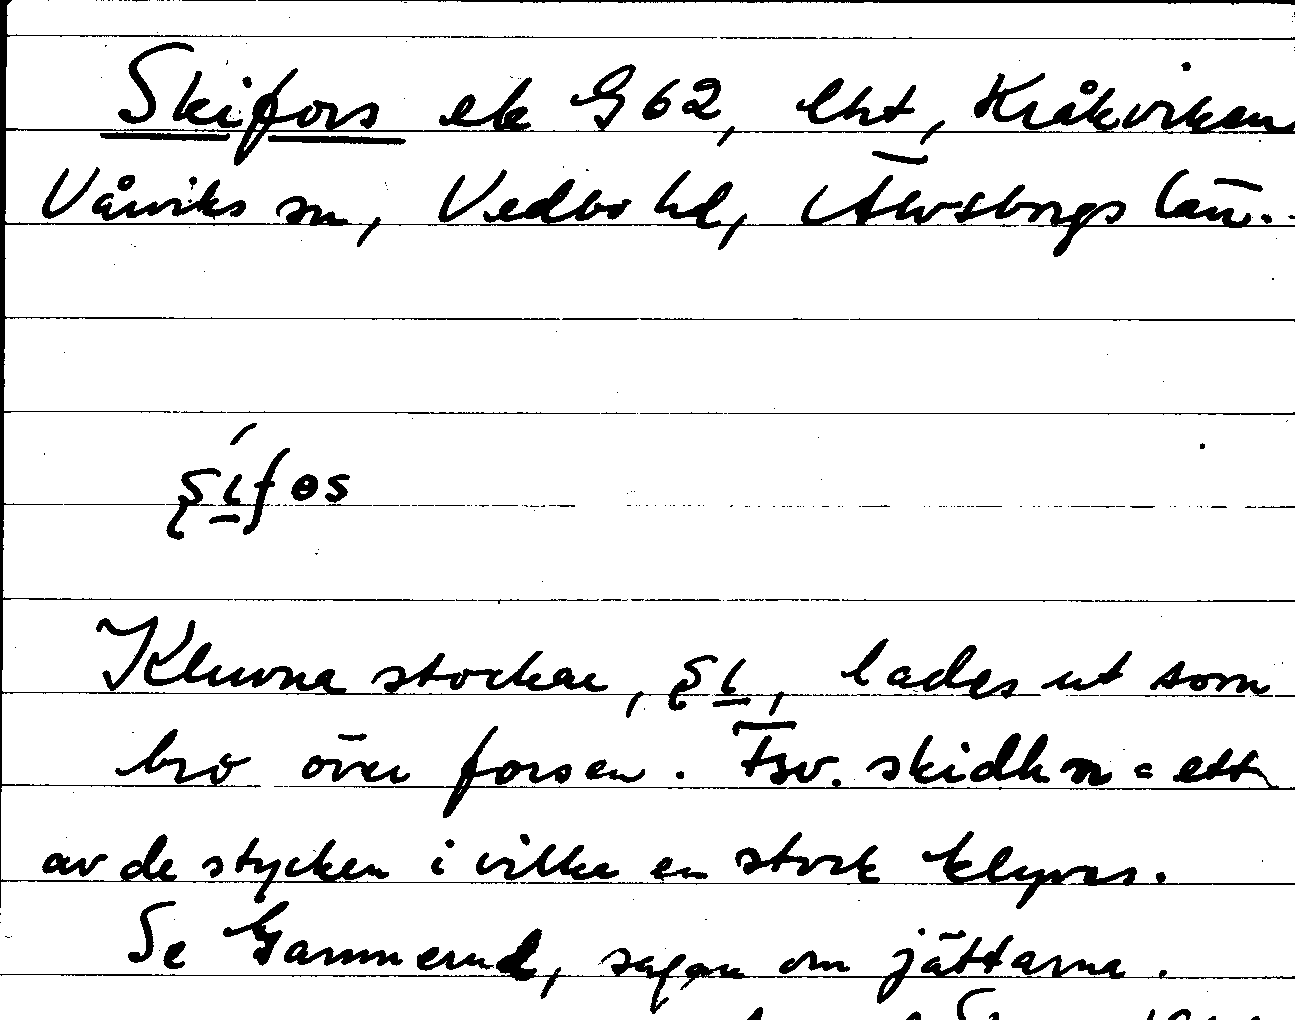 Skifors ek G62, lht, Kråkviken
Vårviks sn, Vedbo hd, Älvsborgs län.
Kluvna stockar, lades ut som
bro över forsen. Fsv. skidh n = ett
av de stycken i vilka en stock klyves.
Se Gammerud, sagan om jättarna.